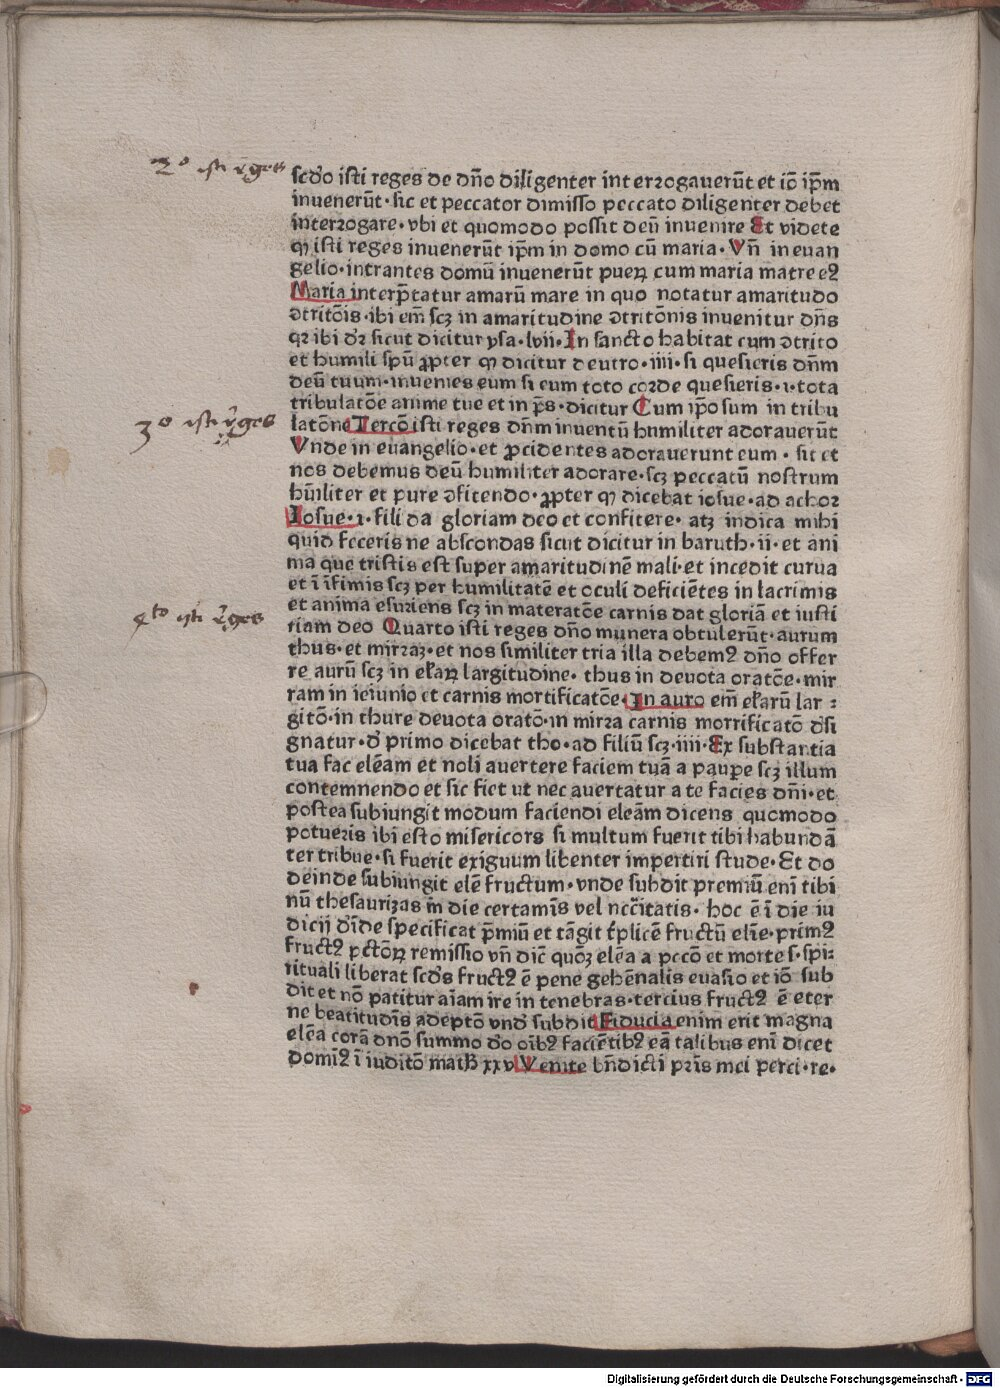 2o isti reges
scdo isti reges de dño diligenter interrogauerūt et iō ip̄m
inuenerūt· sic et peccator dimisso peccato diligenter debet
interrogare· vbi et quomodo possit deū inuenire Et videte
ꝙ isti reges inuenerūt ip̄m in domo cū maria· Vñ in euan
gelio· intrantes domū inuenerūt pueꝝ cum maria matre eꝰ
Maria interp̄tatur amarū mare in quo notatur amaritudo
ꝯtritōis· ibi em̄ scꝫ in amaritudine ꝯtritōnis inuenitur dn̄s
qꝛ ibi dꝛ sicut dicitur ysa· lvii· In sancto habitat cum ꝯtrito
et humili spū ꝓpter ꝙ dicitur deutro· iiii· si quesieris dn̄m
deū tuum· inuenies eum si eum toto corde quesieris· ⁊· tota
tribulatōe anime tue et in p̄s· dicitur Cum ip̄o sum in tribu
3o isti reges
latōne Tercō isti reges dn̄m inuentū humiliter adorauerūt
Vnde in euangelio· et ꝓcidentes adorauerunt eum· sic et
nos debemus deū humiliter adorare· scꝫ peccatū nostrum
hūiliter et pure ꝯfitendo· ꝓpter ꝙ dicebat iosue· ad achor
Iosue· ⁊· fili da gloriam deo et confitere· atꝫ indica mihi
quid feceris ne abscondas sicut dicitur in baruth· ii· et ani
ma que tristis est super amaritudinē mali· et incedit curua
et ī īfimis scꝫ per humilitatē et oculi deficiētes in lacrimis
et anima esuriens scꝫ in materatōe carnis dat gloriā et iusti
4to isti reges
tiam deo Quarto isti reges dño munera obtulerūt· aurum
thus· et mirraꝫ· et nos similiter tria illa debemꝰ dño offer
re aurū scꝫ in elaꝝ largitudine· thus in deuota oratōe· mir
ram in ieiunio et carnis mortificatōe· In auro em̄ elarū lar ⸗
gitō· in thure deuota oratō· in mirra carnis mortificatō dsi
gnatur· d primo dicebat tho· ad filiū scꝫ· iiii· Ex substantia
tua fac eleāam et noli auertere faciem tuā a paupe scꝫ illum
contemnendo et sic fiet ut nec auertatur a te facies dn̄i· et
postea subiungit modum faciendi eleāam dicens quomodo
potueris ibi esto misericors si multum fuerit tibi habundā
ter tribue· si fuerit exiguum libenter impertiri stude· Et do
deinde subiungit elē fructum· vnde subdit premiū eni tibi
nū thesaurizas in die certamīs vel nccitatis· hoc ē ī die iu
dicij dīde specificat p̄miū et tāgit tplicē fructū elie· primꝰ
fructꝰ pctōꝝ remissio vñ dic̄ quōꝫ eleā a pccō et morte s· spi⸗
rituali liberat scds fructꝰ ē pene gehēnalis euasio et iō sub
dit et nō patitur aīam ire in tenebras· tercius fructꝰ ē eter
ne beatitudīs adeptō vnd subdit Fiducia enim erit magna
eleā corā dnō summo do oibꝰ faciētibꝰ eā talibus eni dicet
domīꝰ ī iuditō math xxv Venite bn̄dicti pris mei perci· re·
Digitalisierung gefördert durch die Deutsche Forschungsgemeinschaft - DFG